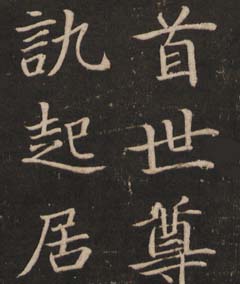 首世尊
訊起居